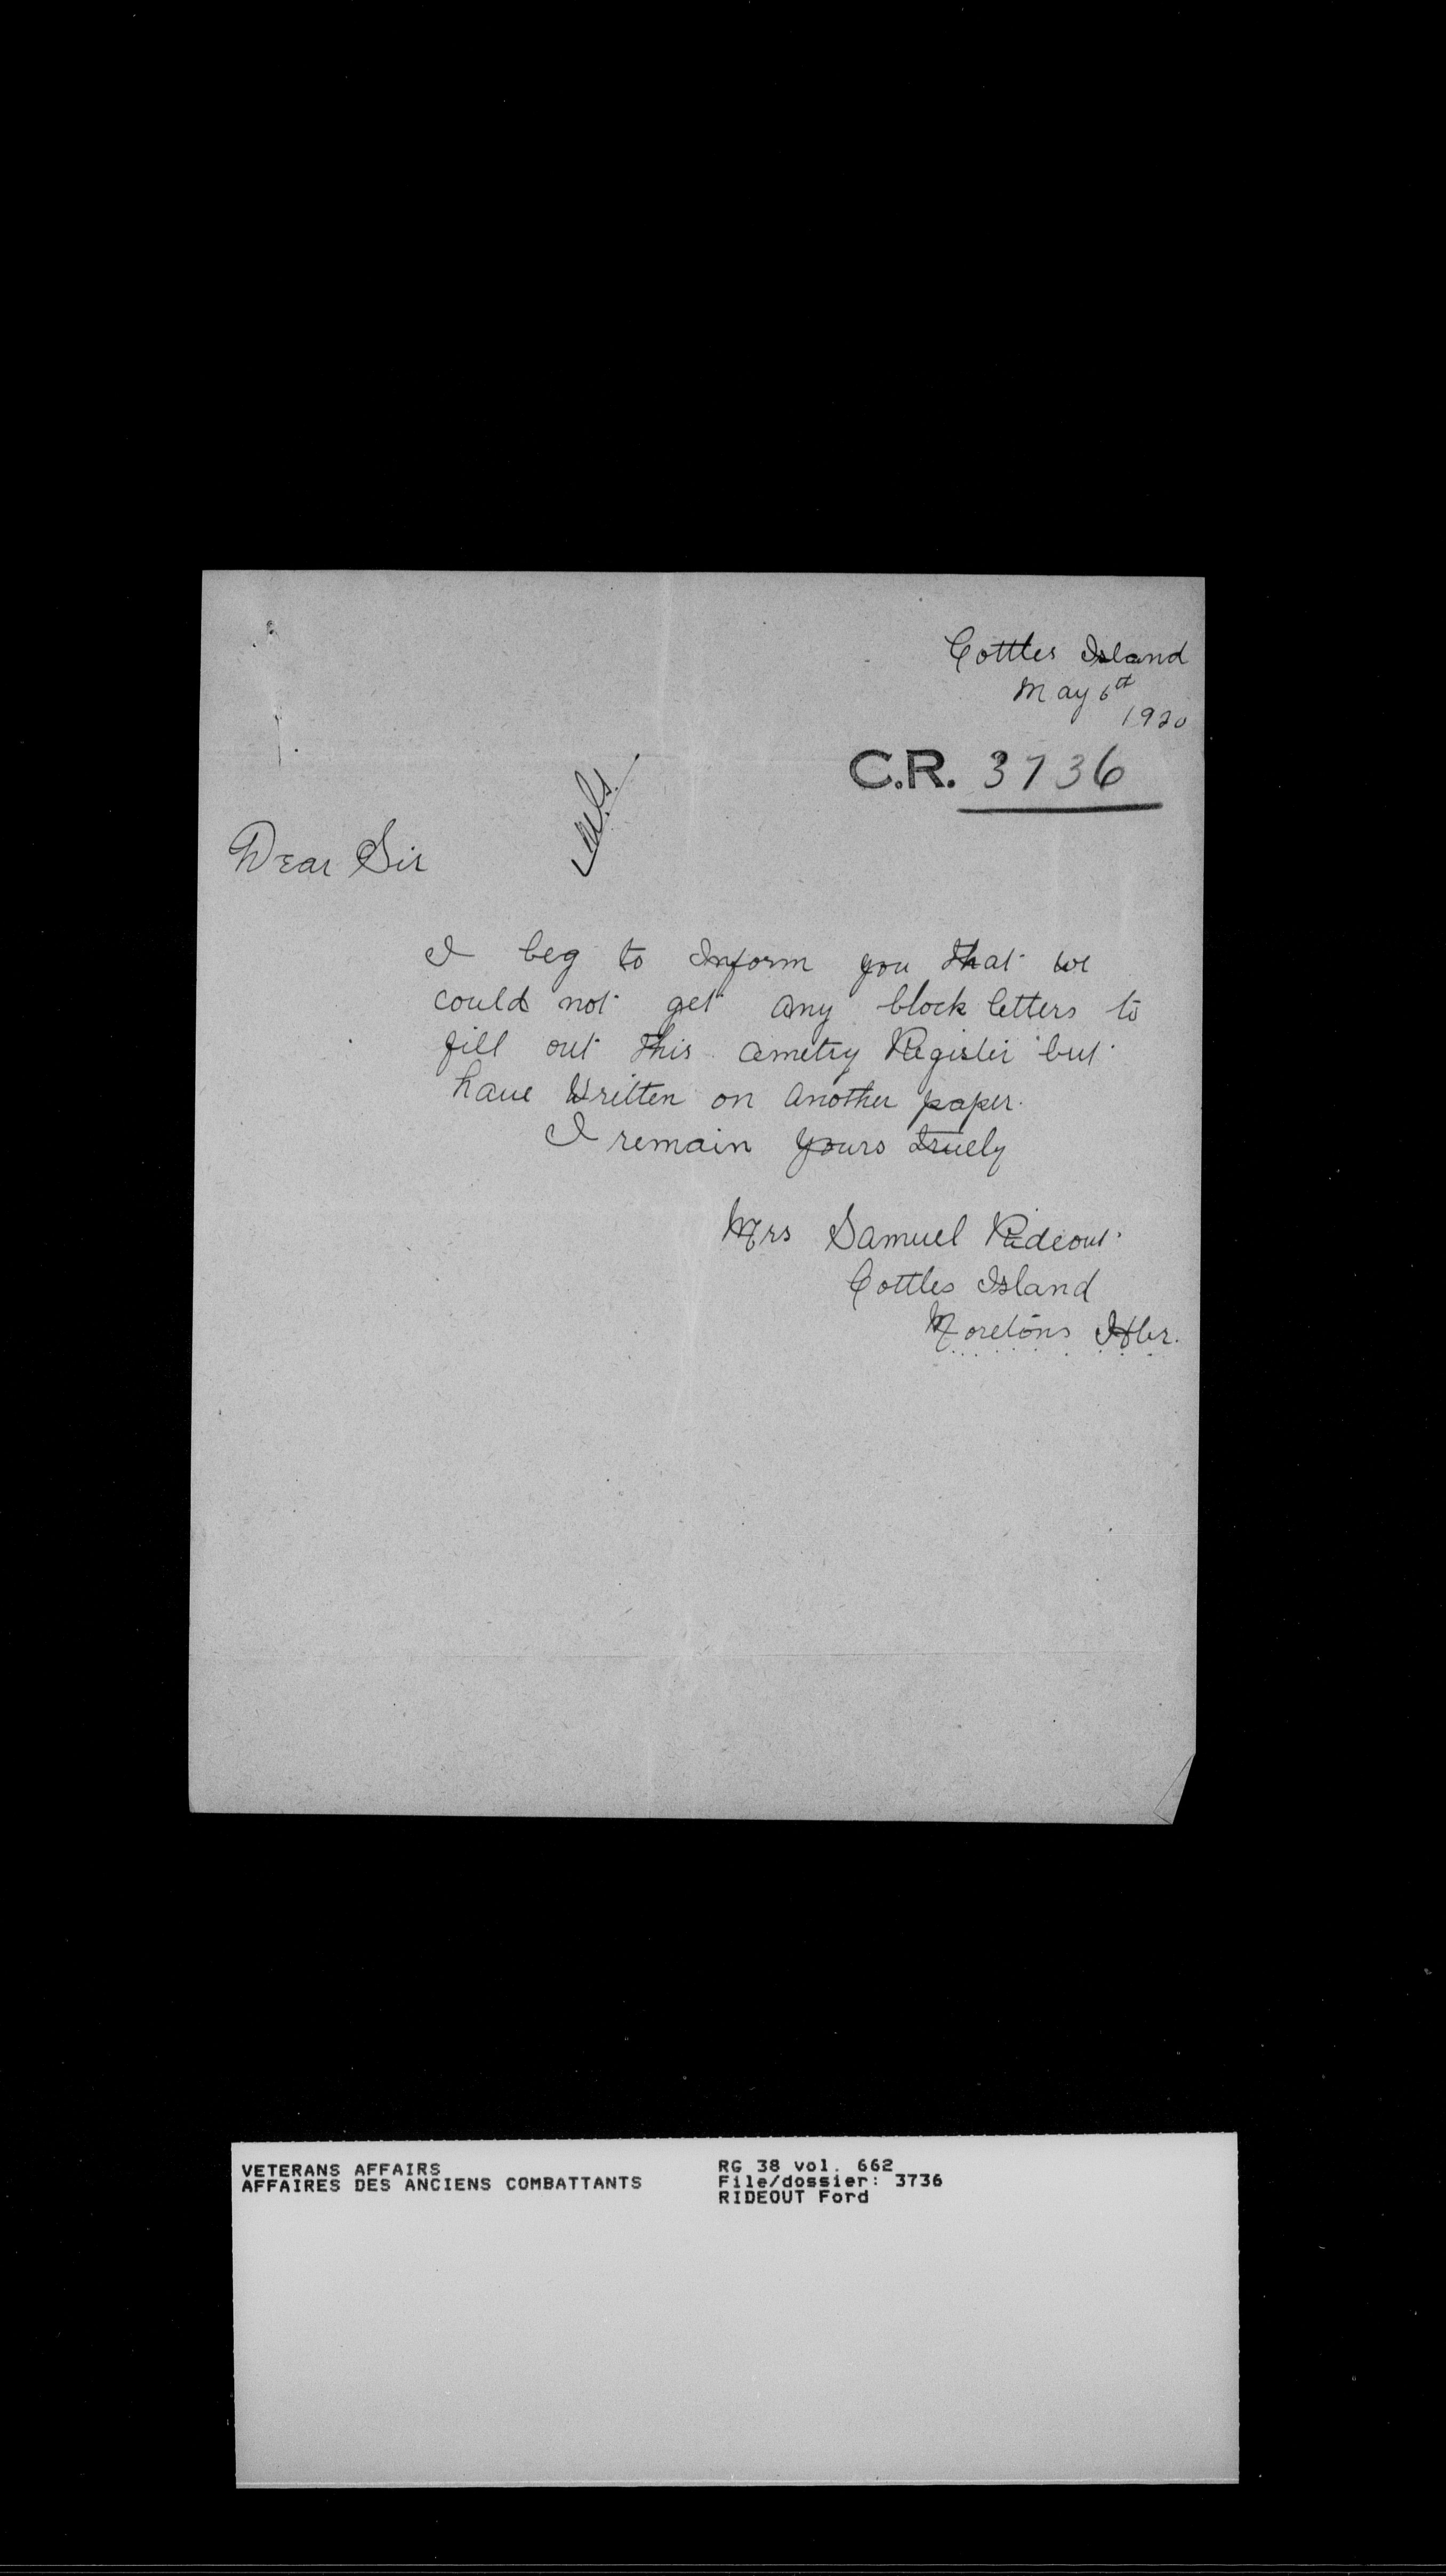 Cottles Island
May 6th
1920
C.R. 3736
Dear Sir
I beg to Inform you that we
could not get any block letters to
fill out this cemetry Register but
have Written on another paper.
I remain yours truely
Mrs Samuel Rideout
Cottles Island
Moretons Hbr.
VETERANS AFFAIRS
AFFAIRES DES ANCIENS COMBATTANTS
RG 38 vol. 662
File/dossier: 3736
RIDEOUT Ford